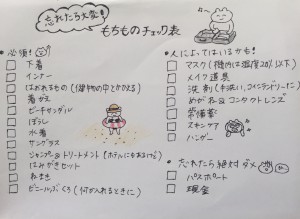 忘れたら大変!
もちものチェック表
必須!
下着
インナー
はおれるもの(建物の中とかさえる)
着がえ
ビーチサンダル
ぼうし
水着
サングラス
シャンプー&トリートメント(ホテルにもあるけど)
はみがきセット
ねまき
ビニールぶくろ(何か入れるときに)
人によってはいるかも!
マスク(機内は湿度20%以下)
メイク道具
洗剤(手洗い、コインランドリーだ)
めがね&コンタクトレンズ
常備薬
スキンケア
ハンガー
忘れたら絶対ダメ
パスポート
現金